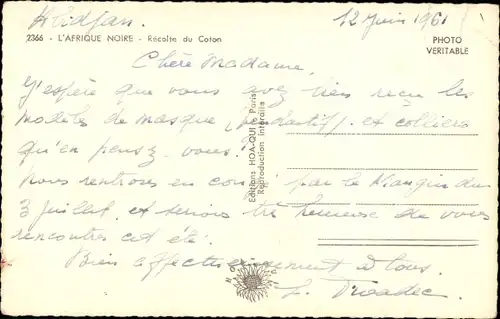 Abidjan. 12 Juin 1961
2366 - L'AFRIQUE NOIRE - Récolte du Coton
PHOTO
VÉRITABLE
Chère Madame.
J'espère que vous avez bien reçu les
modèles de masque, pendentifs et colliers
qu'en pensez-vous?
Nous rentrons en congé par le Mangin du
3 juillet, et serions très heureuse de vous
rencontrer cet été.
Bien affectueusement à tous.
L. Troadec
Editions HOA-QUI Paris
Reproduction interdite